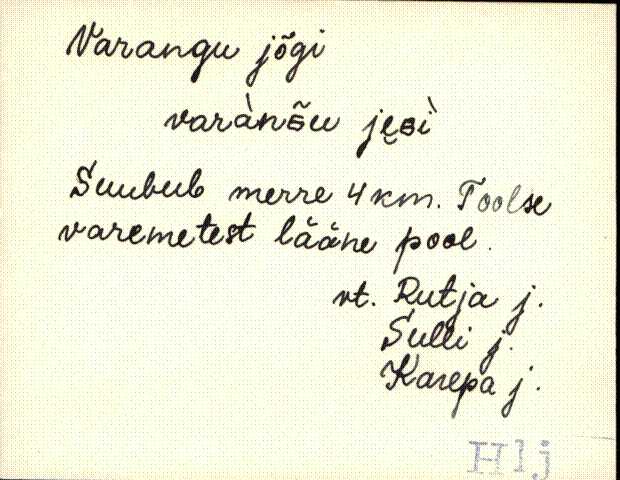 Varangu jõgi
varànG̀u jẹGì
Suubub merre 4 km. Toolse
varemetest lääne pool.
vt. Rutja j.
Sulli j.
Karepa j.
Hlj